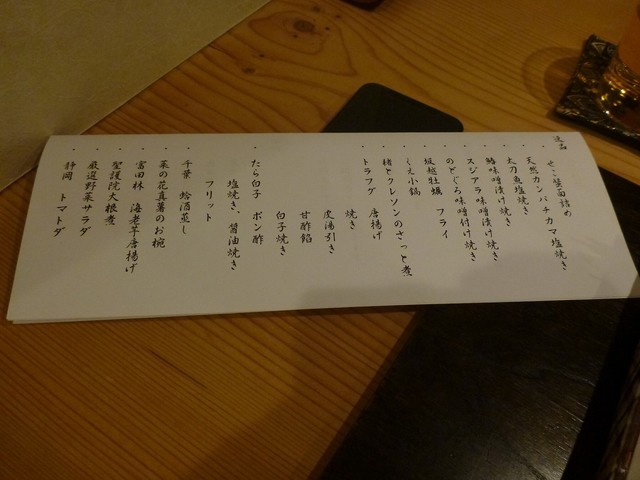 逸品
・ せこ蟹面詰め
・ 天然カンパチカマ塩焼き
・ 太刀魚塩焼き
・ 鰆味噌漬け焼き
・ スジアラ味噌漬け焼き
・ のどぐろ味噌付け焼き
・ 坂越牡蠣 フライ
・ くえ小鍋
・ 椿とクレソンのさっと煮
・ トラフグ 唐揚げ
焼き
皮湯引き
甘酢餡
白子焼き
・ たら白子 ポン酢
塩焼き、醤油焼き
フリット
・ 千葉 蛤酒蒸し
・ 菜の花真薯のお椀
・ 富田林 海老芋唐揚げ
・ 聖護院大根煮
・ 厳選野菜サラダ
・ 静岡 トマトダ